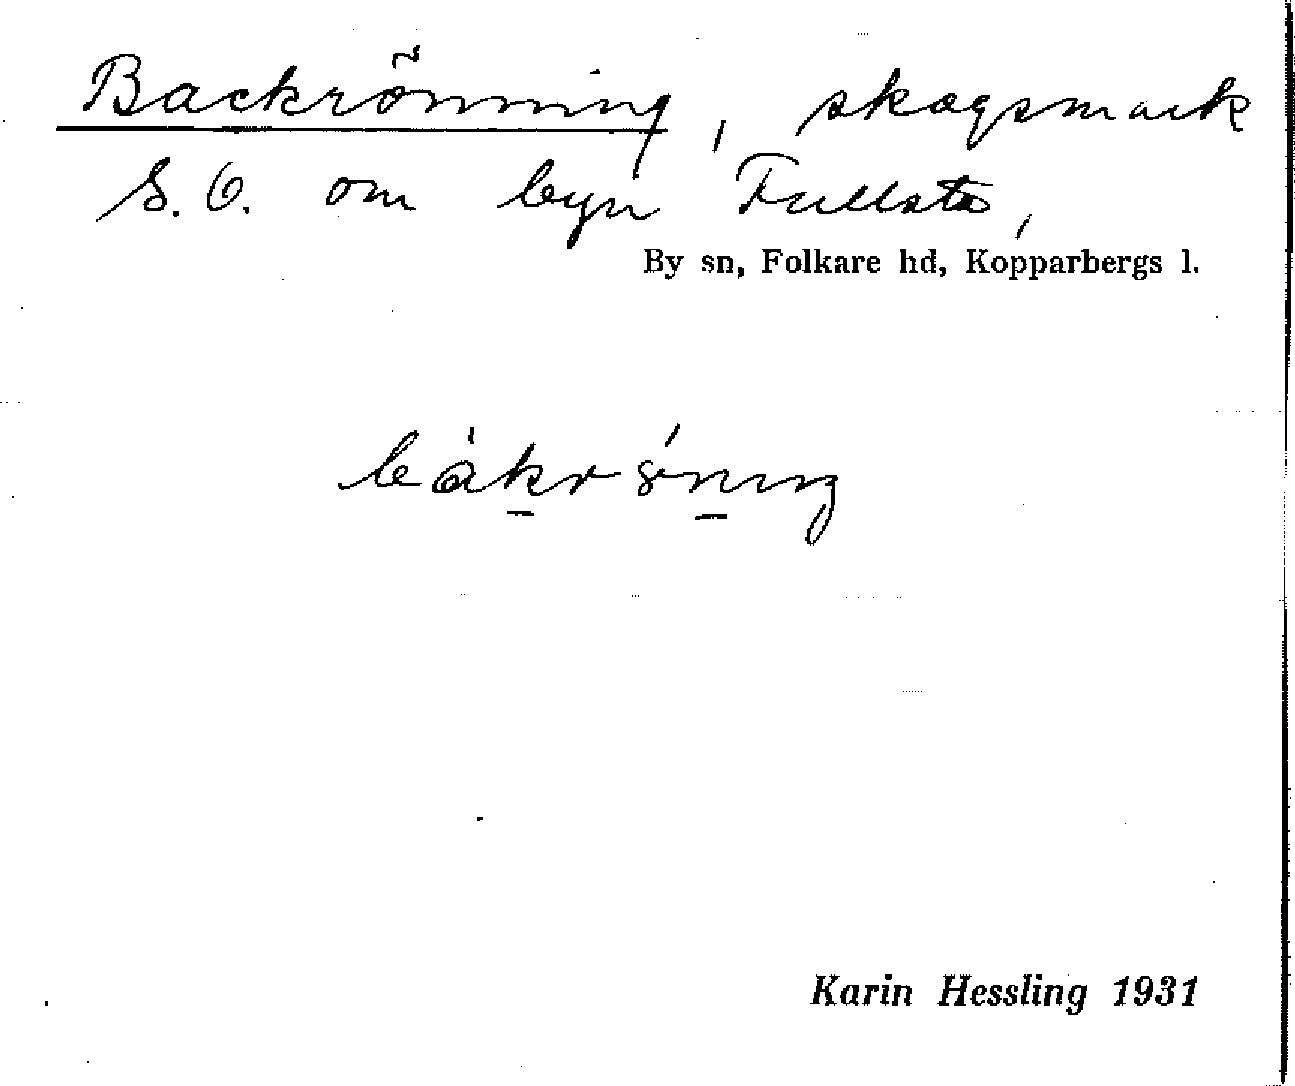 Backrönning, skogsmark
S.O. om byn Fullsta,
By sn, Folkare hd, Kopparbergs l.
Karin Hessling 1931